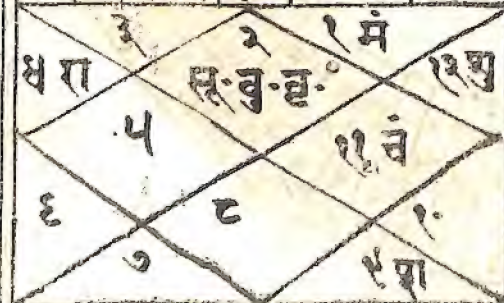 ३ २ १ मं
४ रा सू·बु·बृ· १२ शु
५ ११ चं
६ ८ १०
७ ९ श